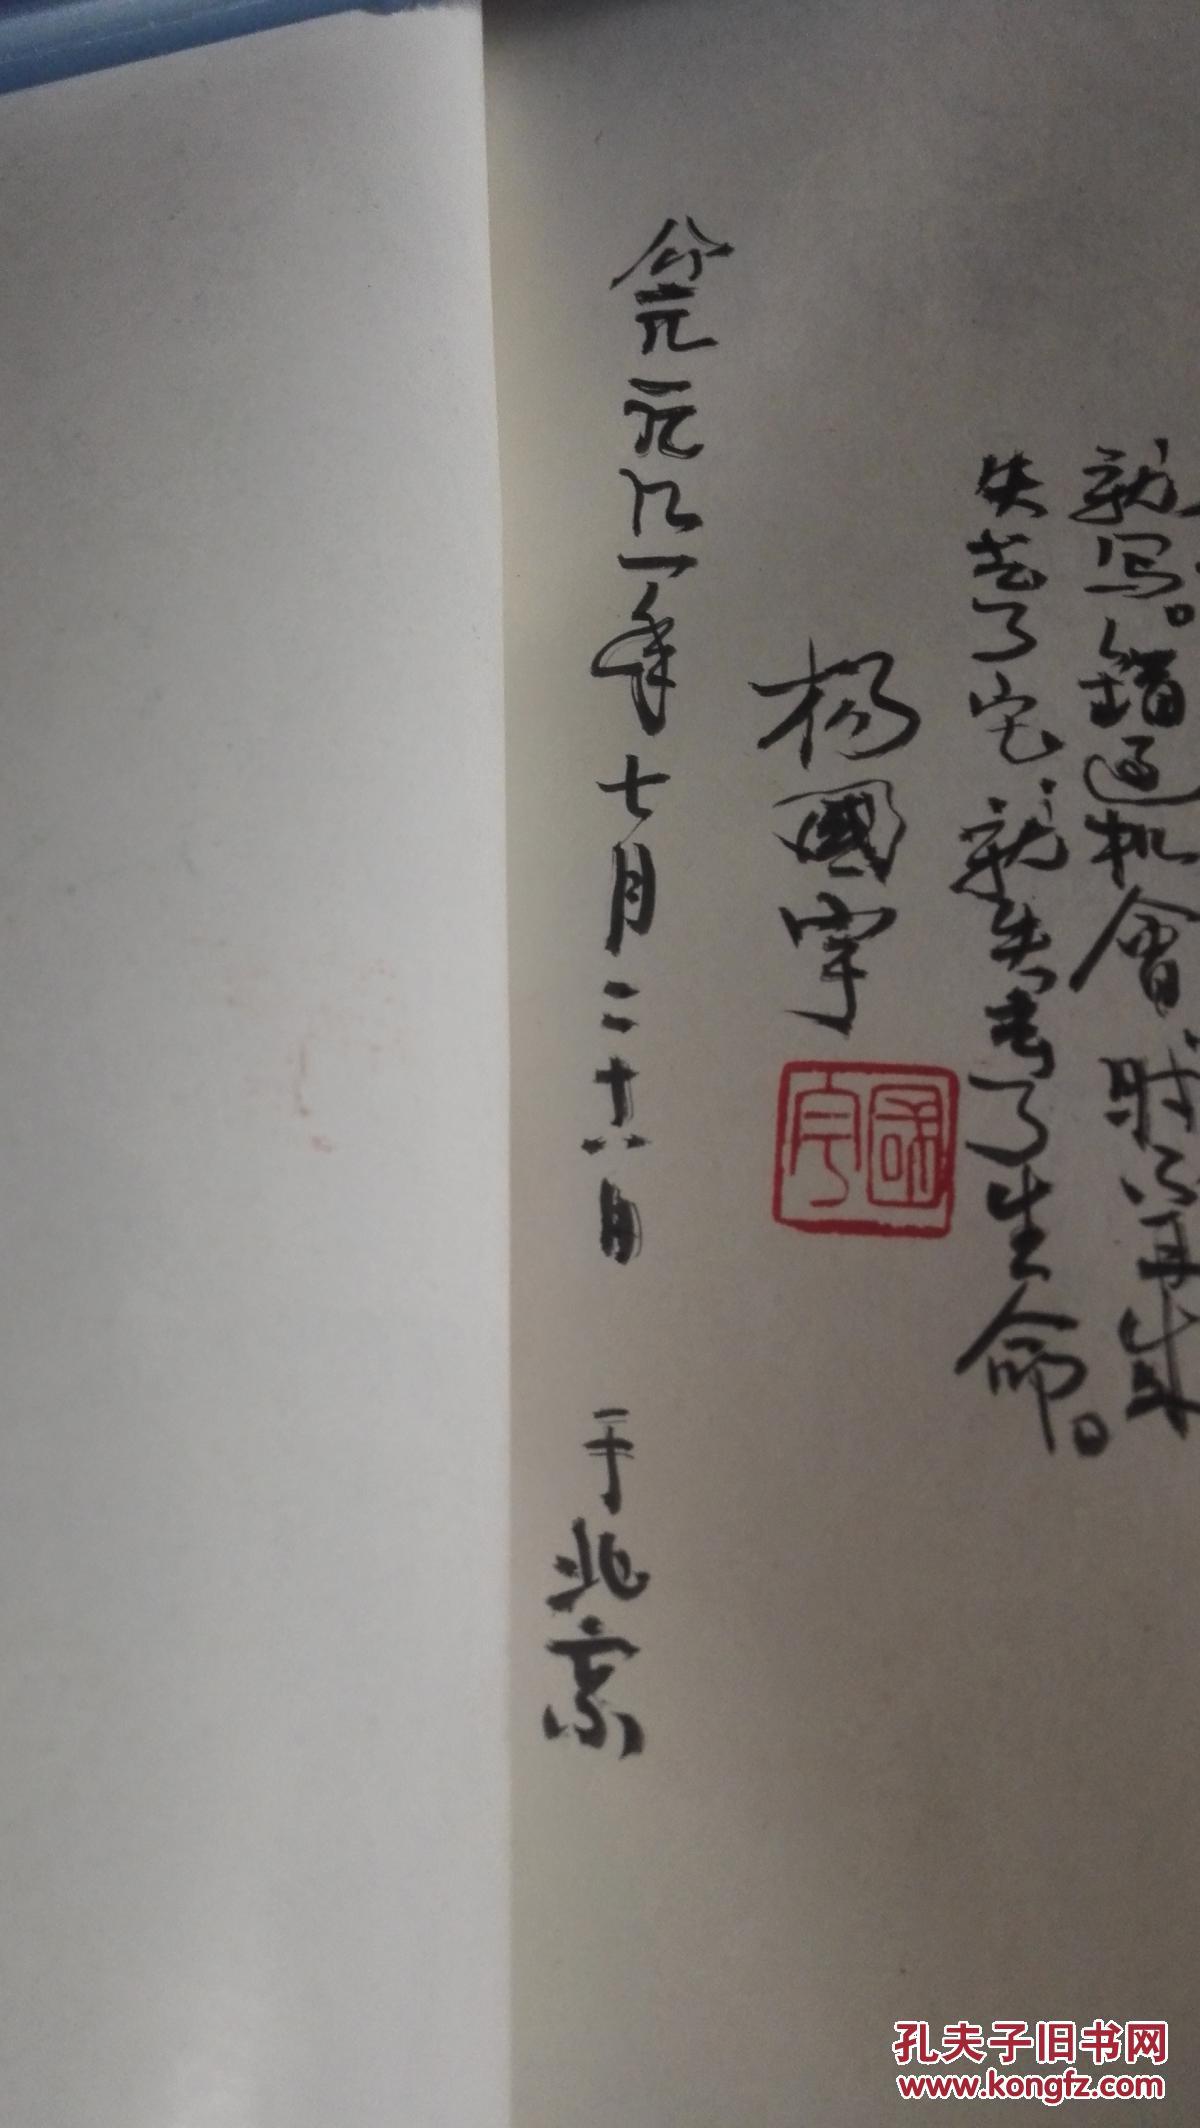 就写。错过机會，时不再来
失去了它，就失去了生命。
杨國宇
國宇
公元一九九一年七月二十八日 于北京
孔夫子旧书网
www.kongfz.com